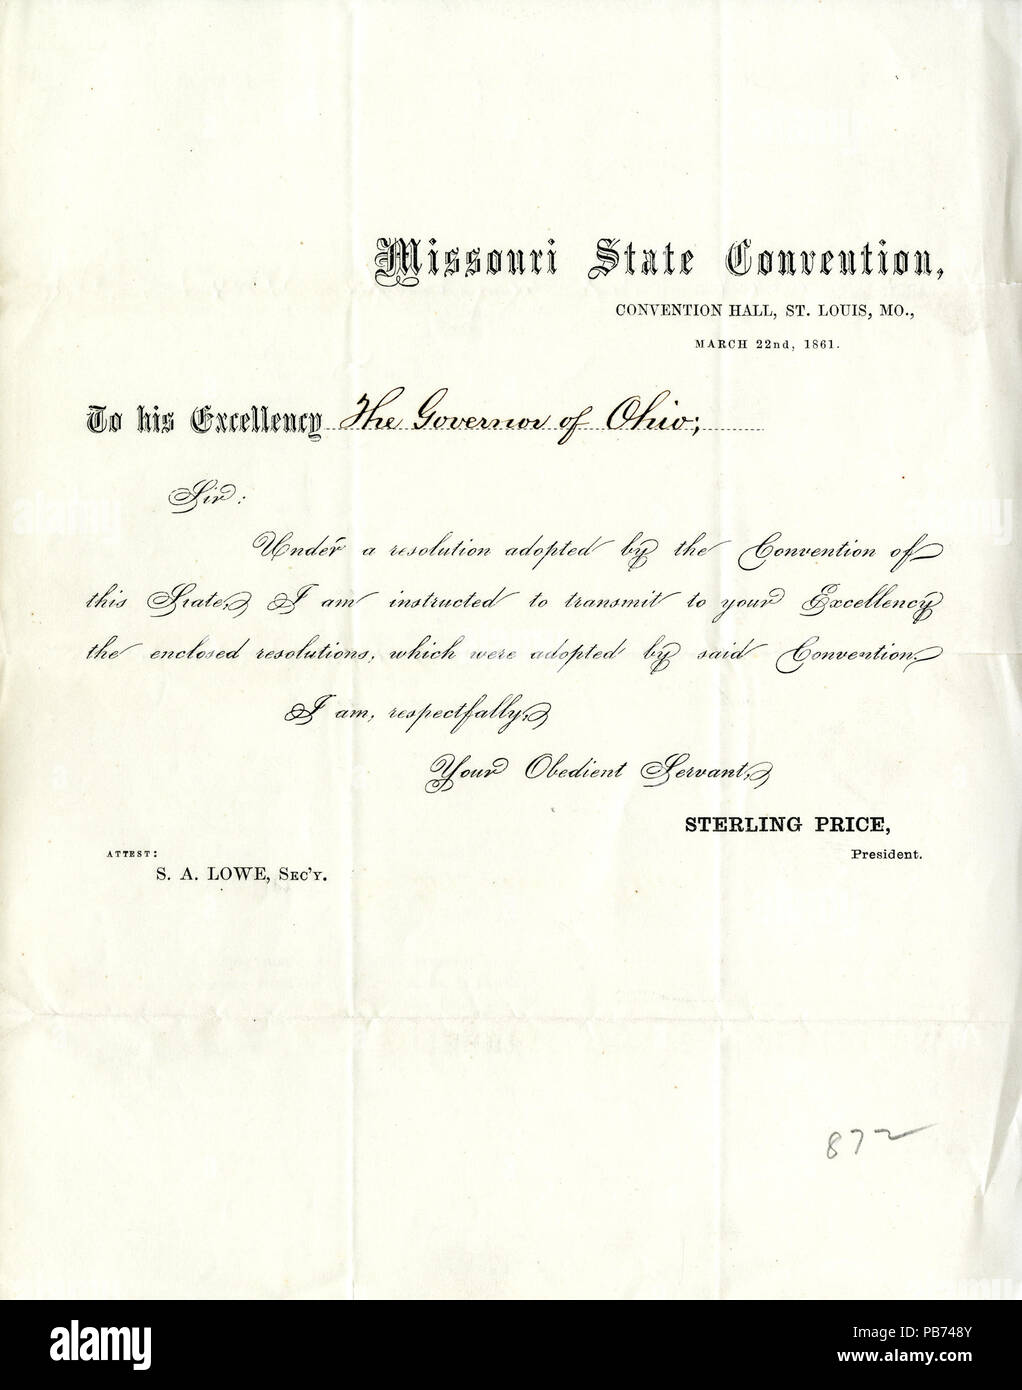 Missouri State Convention,
CONVENTION HALL, ST. LOUIS, MO.,
MARCH 22nd, 1861.
To his Excellency The Governor of Ohio;
Sir:
Under a resolution adopted by the Convention of
this State, I am instructed to transmit to your Excellency
the enclosed resolutions, which were adopted by said Convention.
I am, respectfully,
Your Obedient Servant,
STERLING PRICE,
President.
ATTEST:
S. A. LOWE, SEC'Y.
872
alamy
Image ID: PB748Y
www.alamy.com